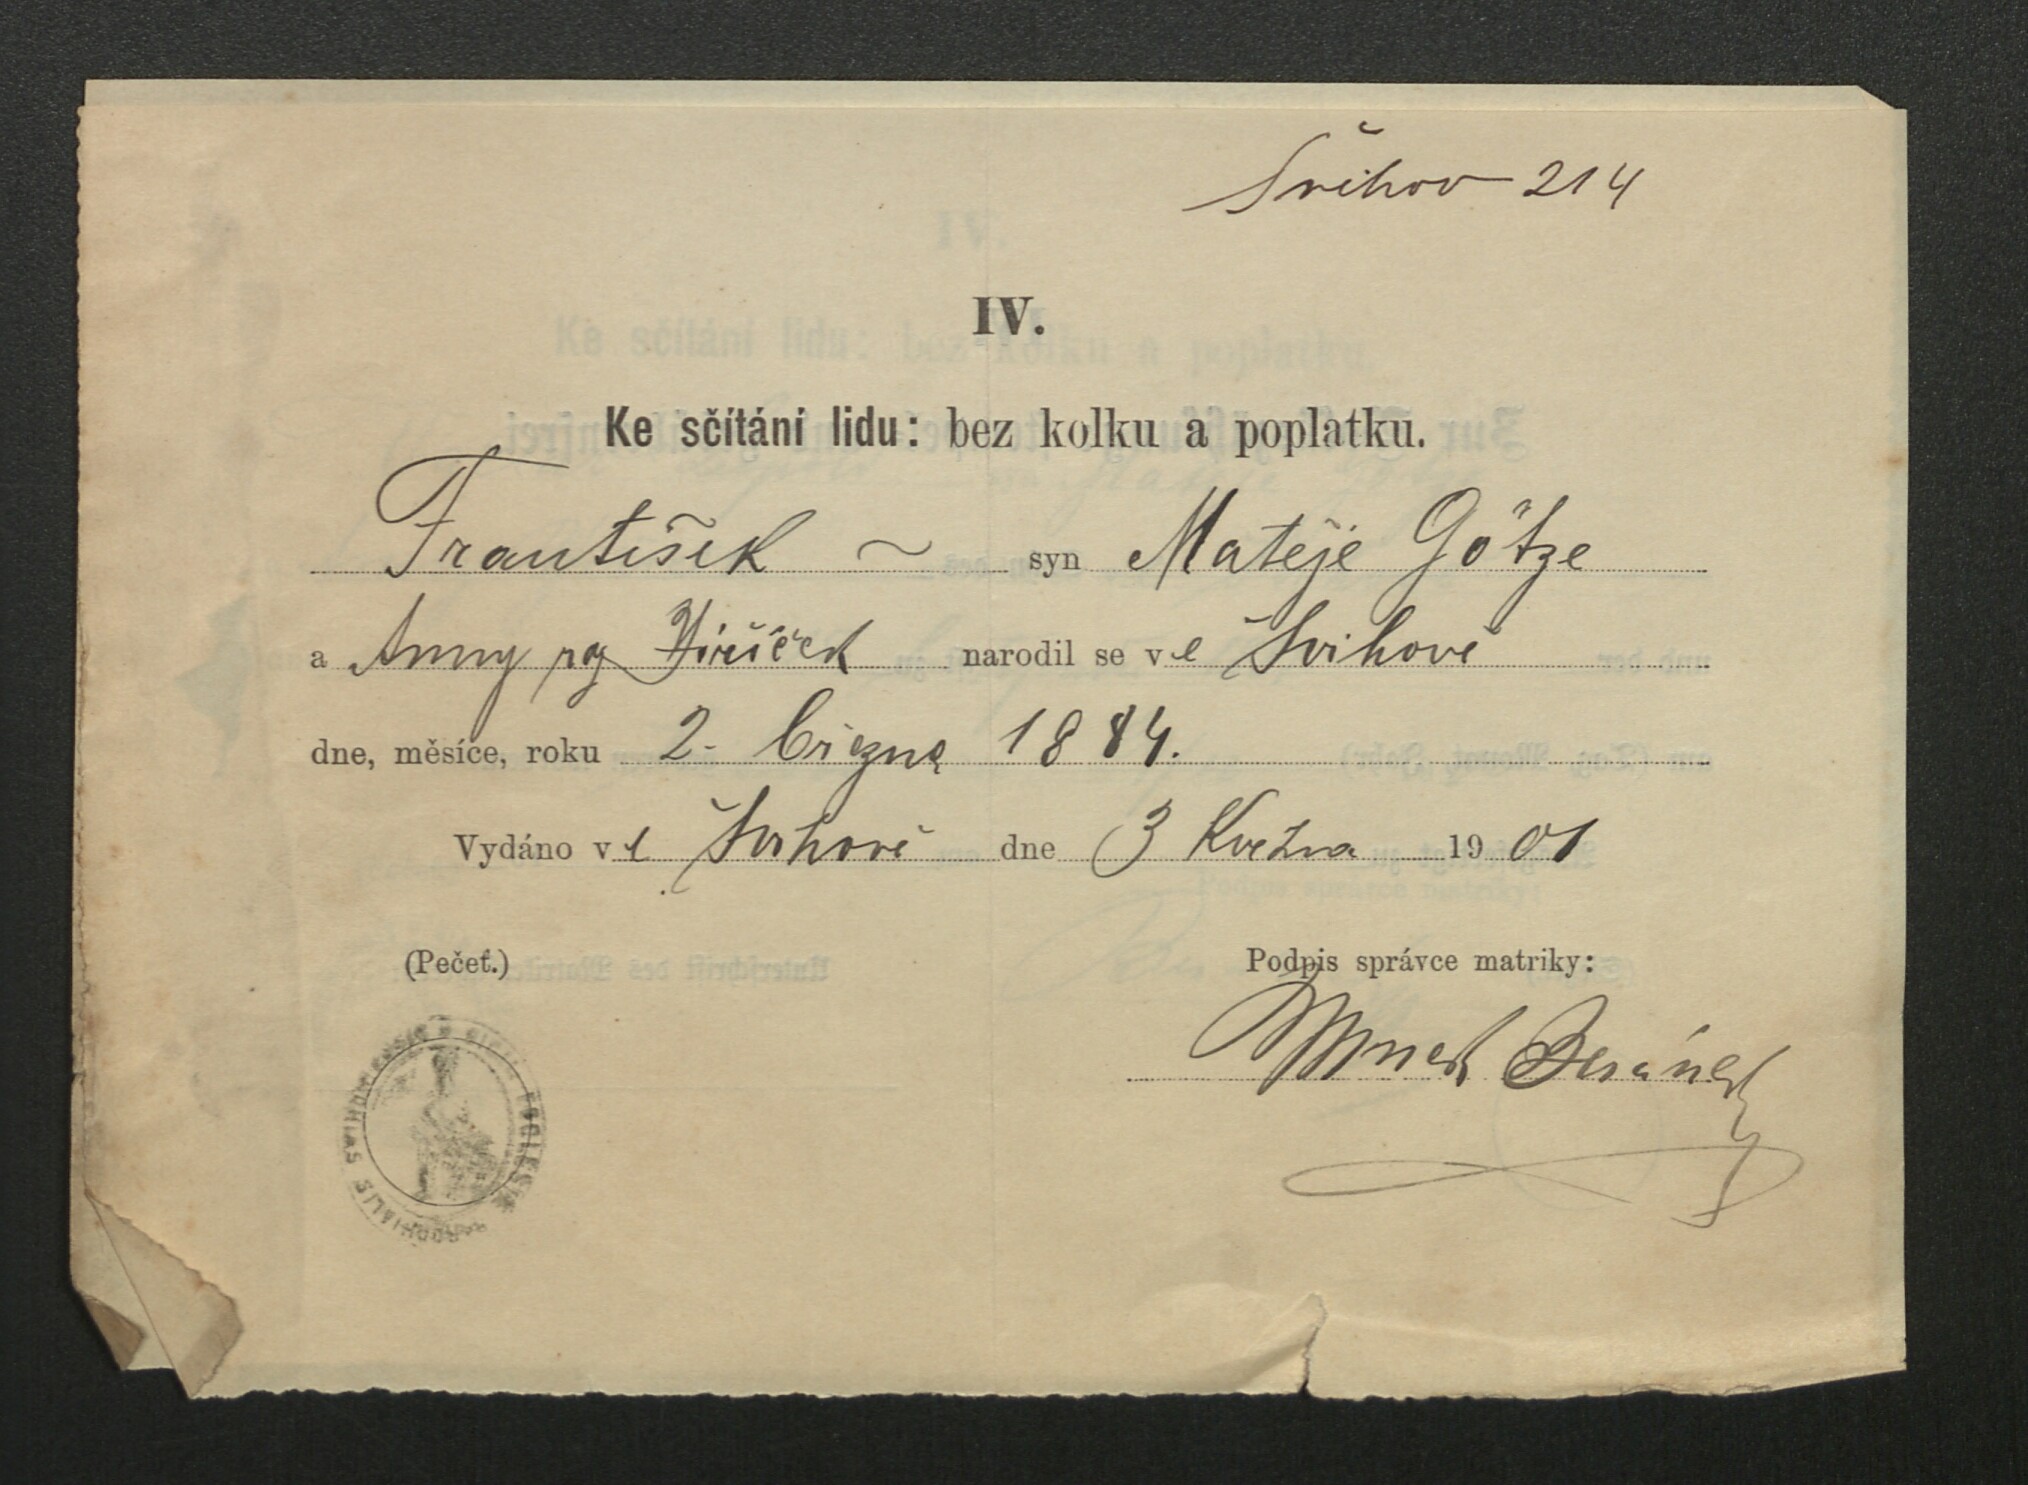 Švihov 214
IV.
Ke sčítání lidu: bez kolku a poplatku.
František ~ syn Matěje Götze
a Anny roz Jiříček narodil se ve Švihově
dne, měsíce, roku 2. března 1884.
Vydáno ve Švihově dne 3 Května 1901
(Pečeť.) Podpis správce matriky:
Beránek
PAROCHIALIS